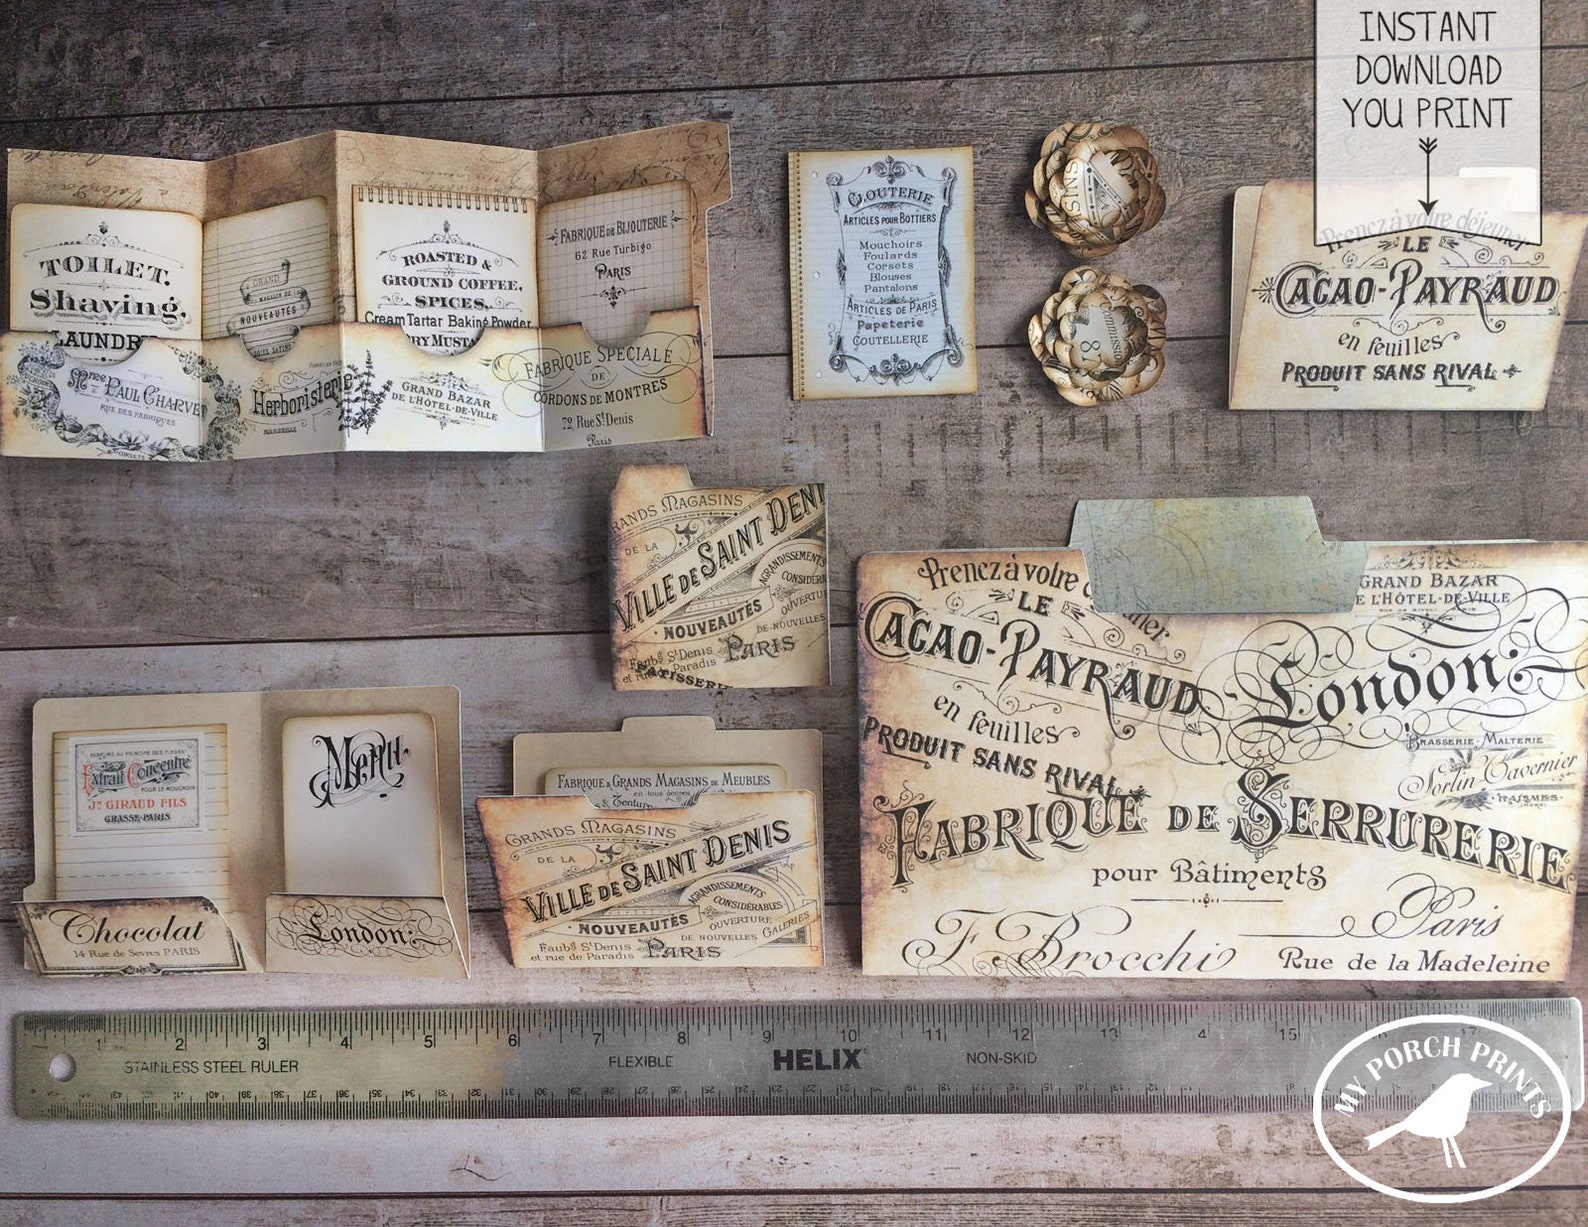 INSTANT
DOWNLOAD
YOU PRINT
TOILET,
Shaving,
LAUNDR
Mme Paul Charvet
RUE DES FABRIQUES
CORSETS
GRAND
MAGASIN DE
NOUVEAUTÉS
Herboristerie
MARSEILLE
ROASTED &
GROUND COFFEE,
SPICES,
Cream Tartar Baking Powder
RY MUSTA
GRAND BAZAR
DE L'HÔTEL-DE-VILLE
FABRIQUE DE BIJOUTERIE
62 Rue Turbigo
PARIS
FABRIQUE SPÉCIALE
DE
CORDONS DE MONTRES
72, Rue St Denis
Paris
CLOUTERIE
ARTICLES POUR BOTTIERS
Mouchoirs
Foulards
Corsets
Blouses
Pantalons
ARTICLES DE PARIS
Papeterie
COUTELLERIE
SINS
Commission
87
Prenez à votre déjeuner
LE
CACAO-PAYRAUD
en feuilles
PRODUIT SANS RIVAL
RANDS MAGASINS
DE LA
VILLE DE SAINT DENI
AGRANDISSEMENTS
CONSIDÉRA
NOUVEAUTÉS
OUVERTUR
DE NOUVELLES
Faubg St Denis
et rue de Paradis
PARIS
PATISSERI
Prenez à votre d
uner
LE
CACAO-PAYRAUD
en feuilles
PRODUIT SANS RIVAL
GRAND BAZAR
E L'HÔTEL-DE-VILLE
London
BRASSERIE-MALTERIE
FABRIQUE DE SERRURERIE
pour Bâtiments
F. Brocchi
Paris
Rue de la Madeleine
PARFUMS AU PRINCIPE DES FLEURS
Extrait Concentré
POUR LE MOUCHOIR
Jn GIRAUD FILS
GRASSE-PARIS
Menu
Chocolat
14 Rue de Sevres PARIS
London
FABRIQUE & GRANDS MAGASINS DE MEUBLES
en tous genres
& Tenture
GRANDS MAGASINS
DE LA
VILLE DE SAINT DENIS
AGRANDISSEMENTS
CONSIDÉRABLES
NOUVEAUTÉS
OUVERTURE
DE NOUVELLES GALERIES
Faubg St Denis
et rue de Paradis
PARIS
1 2 3 4 5 6 7 8 9 10 11 12 13 4 15 17
STAINLESS STEEL RULER
FLEXIBLE
HELIX
NON-SKID
MY PORCH PRINTS